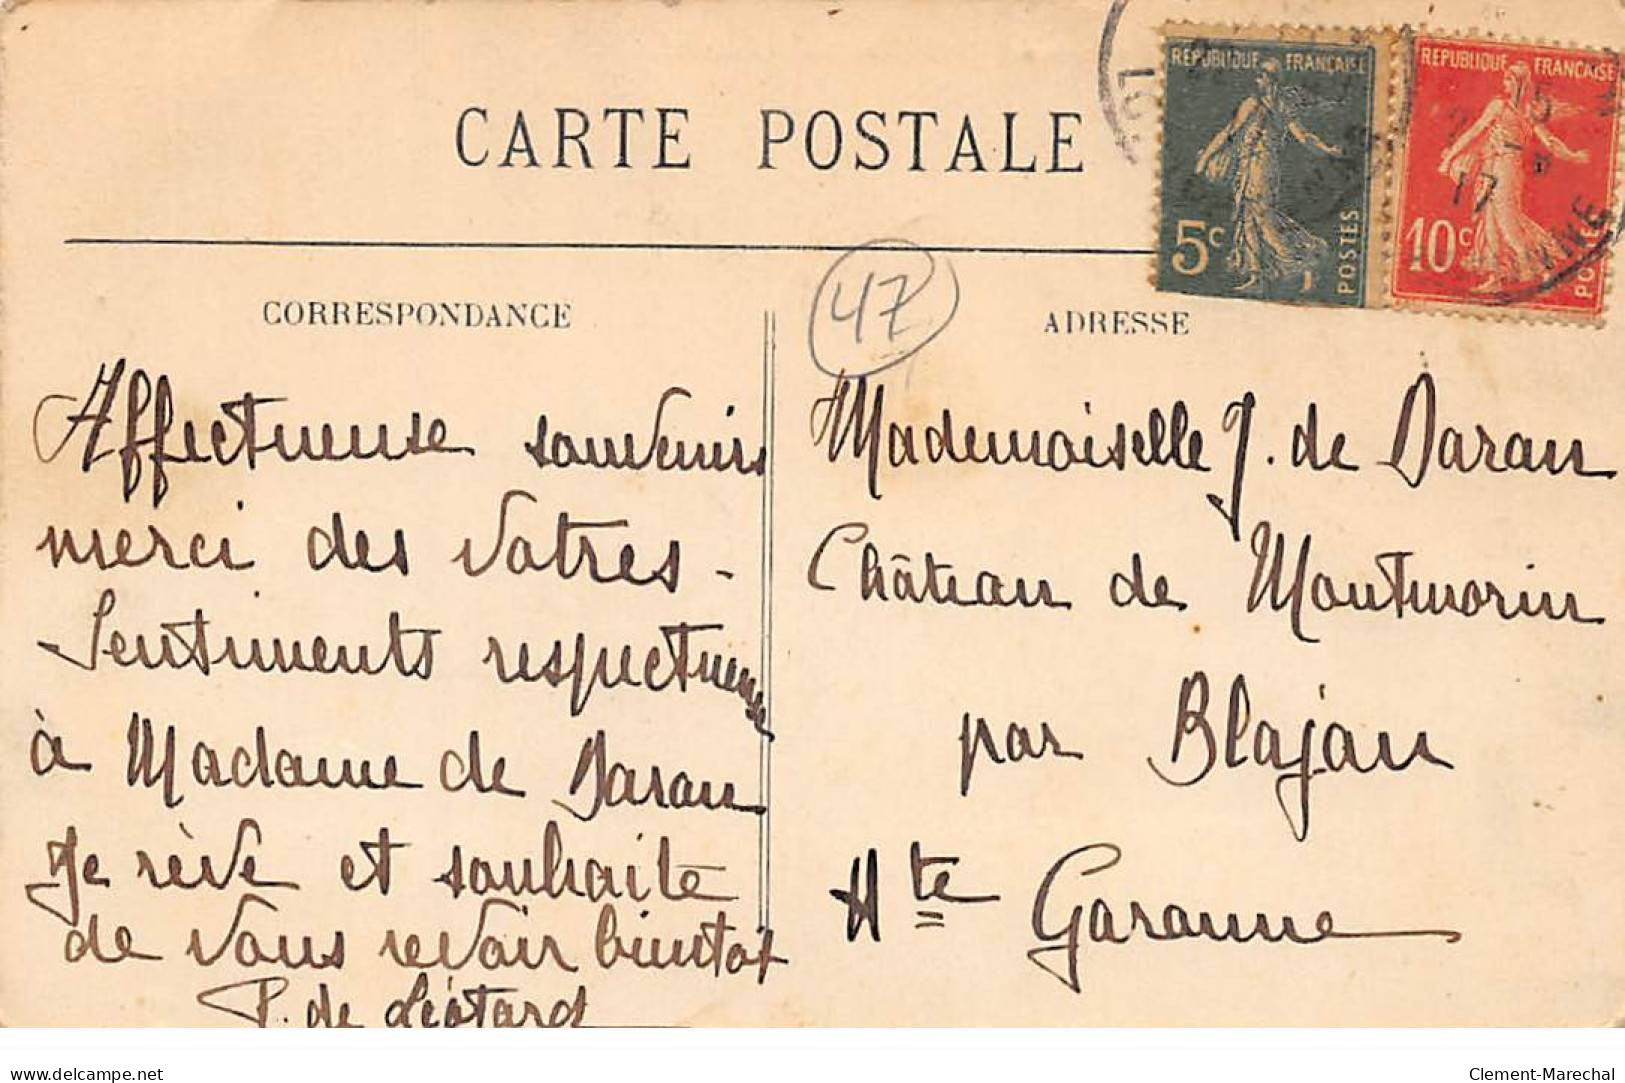 CARTE POSTALE
REPUBLIQUE FRANÇAISE
5c
POSTES
REPUBLIQUE FRANÇAISE
10c
POSTES
15
17
CORRESPONDANCE
47
ADRESSE
Affectueuse souvenirs
merci des votres -
Sentiments respectueuse
à Madame de Daran
Je rêve et souhaite
de vous revoir bientot
P. de Léotard
Mademoiselle J. de Daran
Château de Montmorin
par Blajan
Hte Garonne
delcampe.net
Clement-Marechal